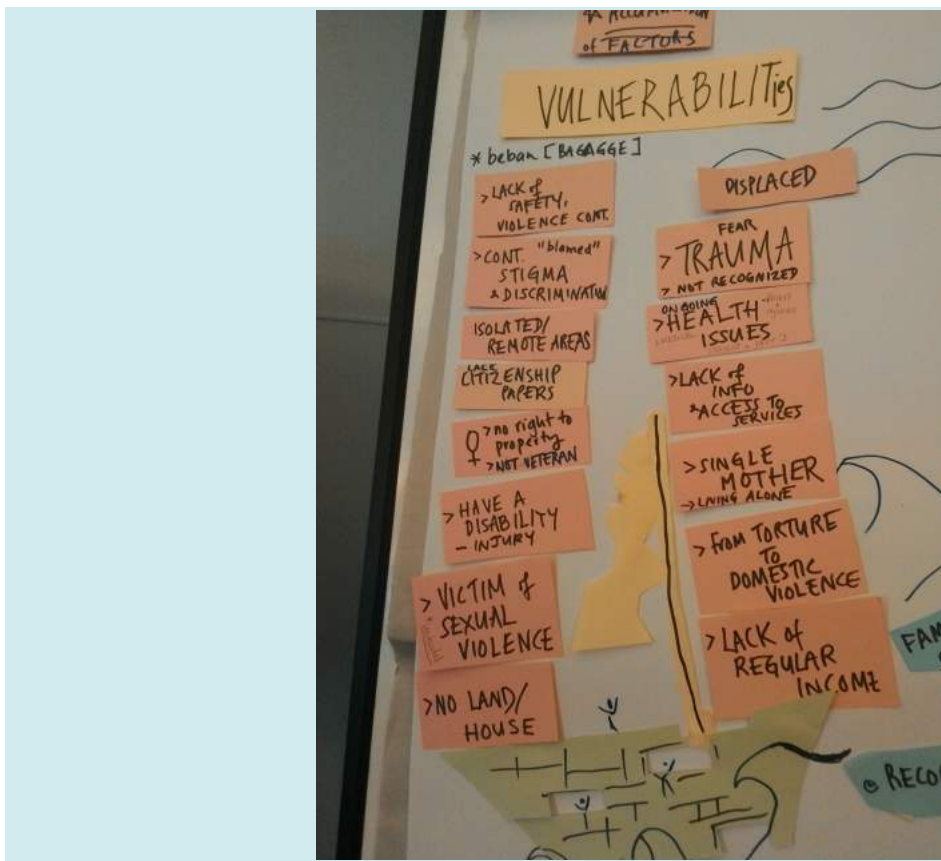 * ACCUMULATION
of FACTORS
VULNERABILITIes
* beban [BAGAGGE]
> LACK of
SAFETY,
VIOLENCE CONT.
> CONT. "blamed"
STIGMA
& DISCRIMINATION
ISOLATED/
REMOTE AREAS
LACK
CITIZENSHIP
PAPERS
♀ > no right to
property
> NOT VETERAN
> HAVE A
DISABILITY
- INJURY
> VICTIM of
SEXUAL
VIOLENCE
> NO LAND/
HOUSE
DISPLACED
FEAR
> TRAUMA
> NOT RECOGNIZED
ONGOING
> HEALTH
ISSUES
> LACK of
INFO
& ACCESS TO
SERVICES
> SINGLE
MOTHER
-> LIVING ALONE
> from TORTURE
TO
DOMESTIC
VIOLENCE
> LACK of
REGULAR
INCOME
FAM
RECO